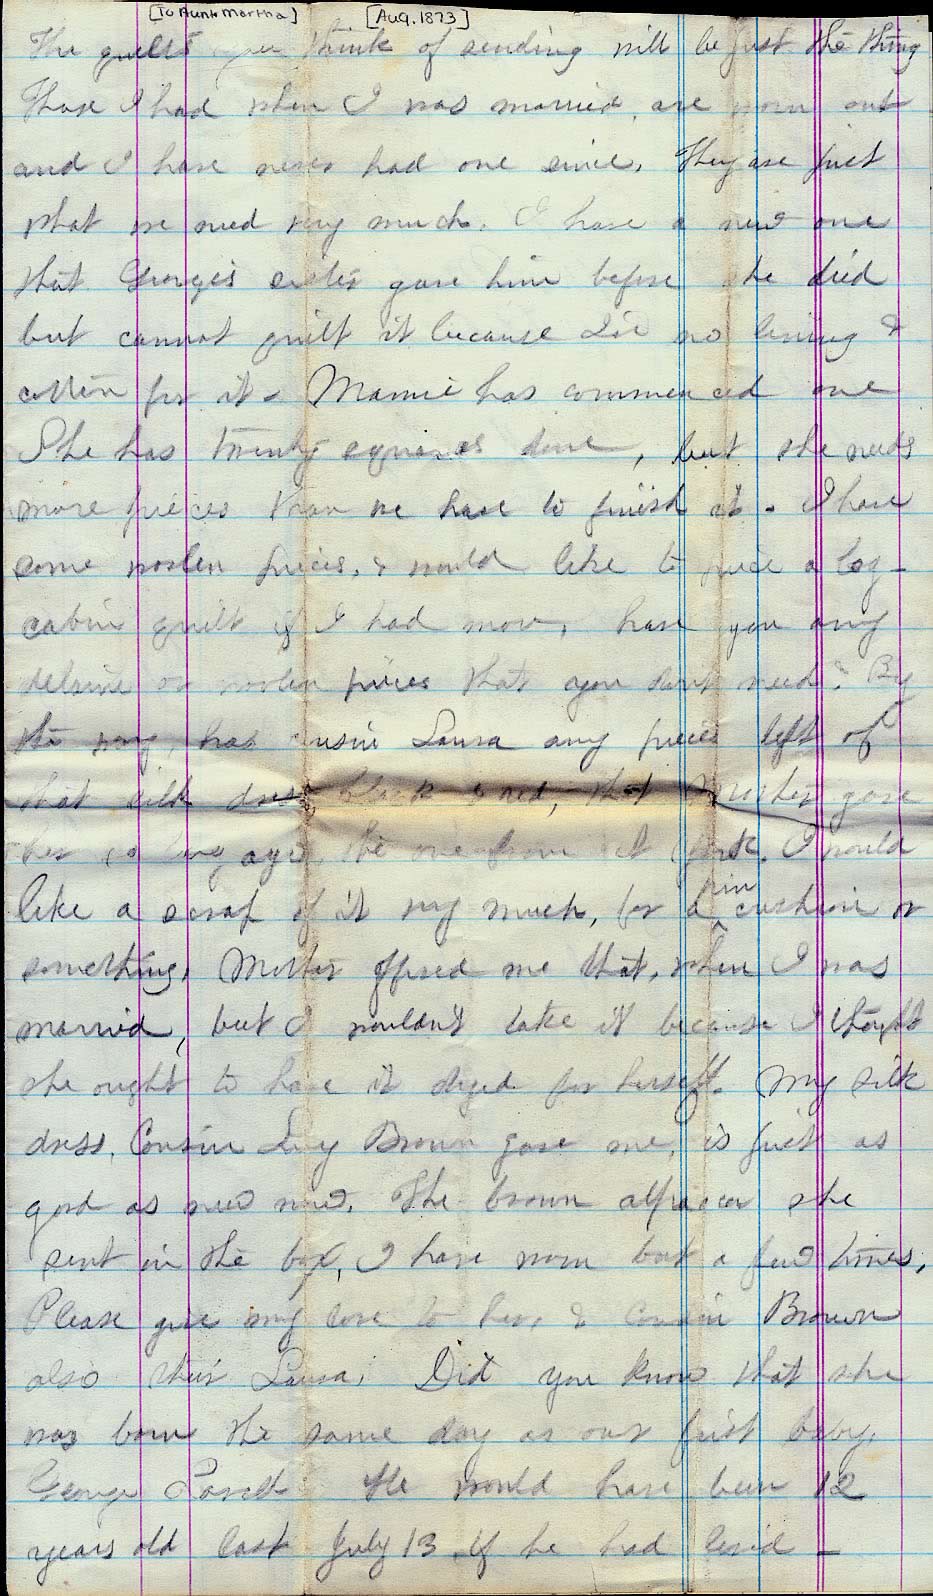 [To Aunt Martha] [Aug. 1873]
The quilts you think of sending will be just the thing
Those I had when I was married, are worn out
and I have never had one since. They are just
what we need very much. I have a new one
that George's sister gave him before she died
but cannot quilt it because I've no lining &
cotton for it. Mamie has commenced one
She has twenty squares done, but she needs
more pieces than we have to finish it. I have
some woolen pieces, & would like to piece a log-
cabin quilt if I had more, have you any
delaine or woolen pieces that you don't need? By
the way, has cousin Laura any pieces left of
that silk dress black & red, that Mother gave
her so long ago, the one from York. I would
like a scrap of it very much, for a pin cushion or
something. Mother offered me that, when I was
married, but I wouldn't take it because I thought
she ought to have it dyed for herself. My silk
dress, Cousin Brown gave me, is just as
good as new now. The brown alpacca she
sent in the box, I have worn but a few times.
Please give my love to her, & Cousin Brown
also their Laura. Did you know that she
was born the same day as our first baby.
George He would have been 12
years old last July 13 if he had lived –